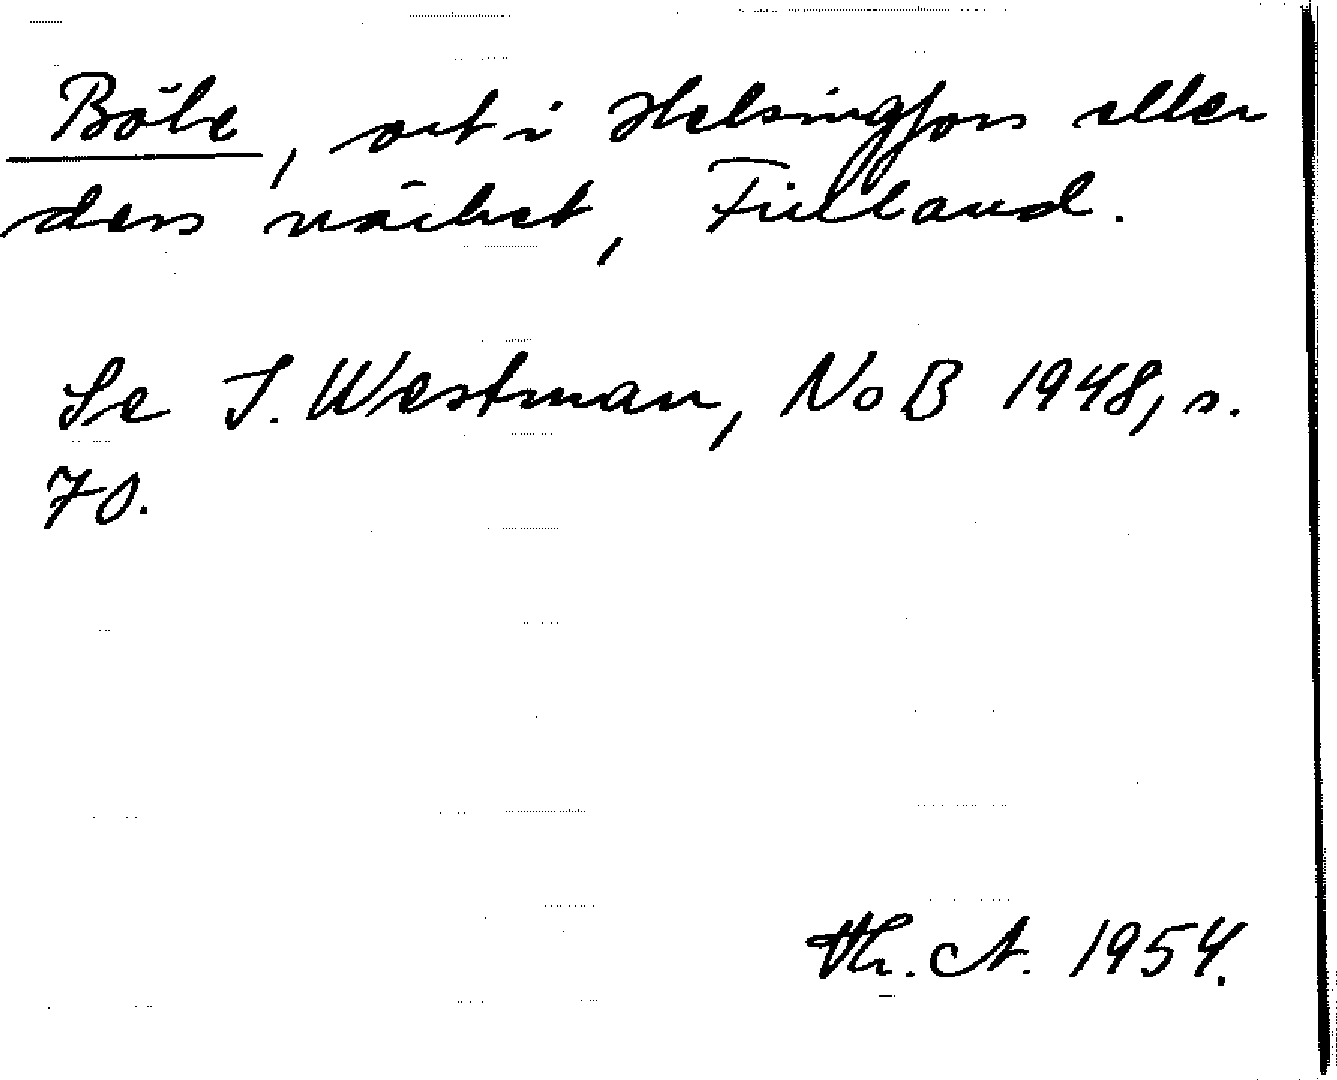 Böle, ort i Helsingfors eller
dess närhet, Finland.
Se I. Westman, NoB 1948, s.
70.
Th. A. 1954.